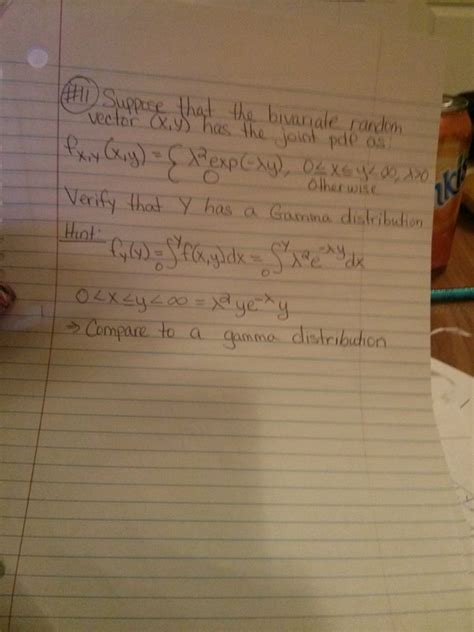 #11) Suppose that the bivariate random
vector (x,y) has the joint pdf as:
fx,y (x,y) = { λ²exp(-λy), 0≤x≤y<∞, λ>0
0 otherwise
Verify that Y has a Gamma distribution
Hint: fy(y) = ∫₀ʸ f(x,y)dx = ∫₀ʸ λ²e^-λy dx
0<x≤y<∞ = λ²ye^-λy
→ Compare to a gamma distribution